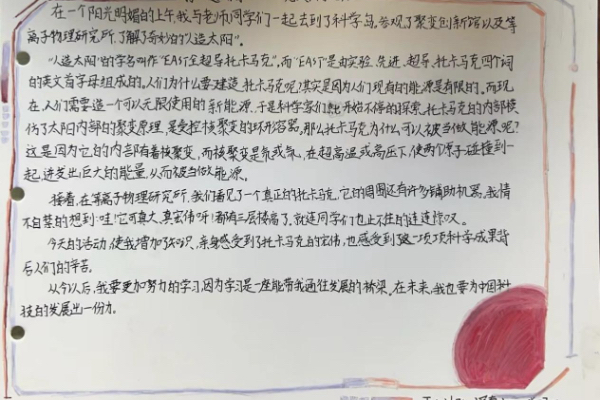 在一个阳光明媚的上午,我与老师同学们一起去到了科学岛,参观了聚变创新馆以及等
离子物理研究所,了解了奇妙的"人造太阳"。
"人造太阳"的学名叫作"EAST全超导托卡马克",而"EAST"是由实验、先进、超导、托卡马克四个词
的英文首字母组成的。人们为什么要建造托卡马克呢?其实是因为人们现有的能源是有限的。而现
在,人们需要造一个可以无限使用的新能源,于是科学家们就开始不停的探索,托卡马克的内部模
仿了太阳内部的聚变原理,是受控核聚变的环形容器,那么托卡马克为什么可以被当做能源呢?
这是因为它的内部有着核聚变,而核聚变是氘或氚,在超高温或高压下,使两个原子碰撞到一
起,迸发出巨大的能量,从而被当做能源。
接着,在等离子物理研究所,我们看见了一个真正的托卡马克,它的周围还有许多辅助机器,我情
不自禁的想到:哇!它可真大,真宏伟呀!都有三层楼高了,就连同学们也止不住的连连惊叹。
今天的活动,使我增加了知识,亲身感受到了托卡马克的宏伟,也感受到了这一项项科学成果背
后人们的辛苦。
从今以后,我要更加努力的学习,因为学习是一座能带我通往发展的桥梁。在未来,我也要为中国科
技的发展出一份力。